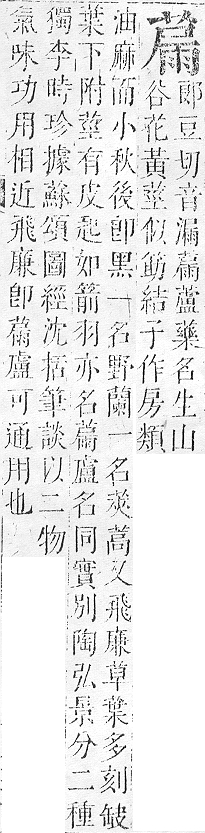 郎豆切音漏蘆藥名生山
谷花黃莖似筯結子作房類
油麻而小秋後卽黑一名野蘭一名莢蒿又飛廉草葉多刻缺
葉下附莖有皮起如箭羽亦名蘆名同實別陶弘景分二種
獨李時珍據蘇頌圖經沈括筆談以二物
氣味功用相近飛廉卽盧可通用也